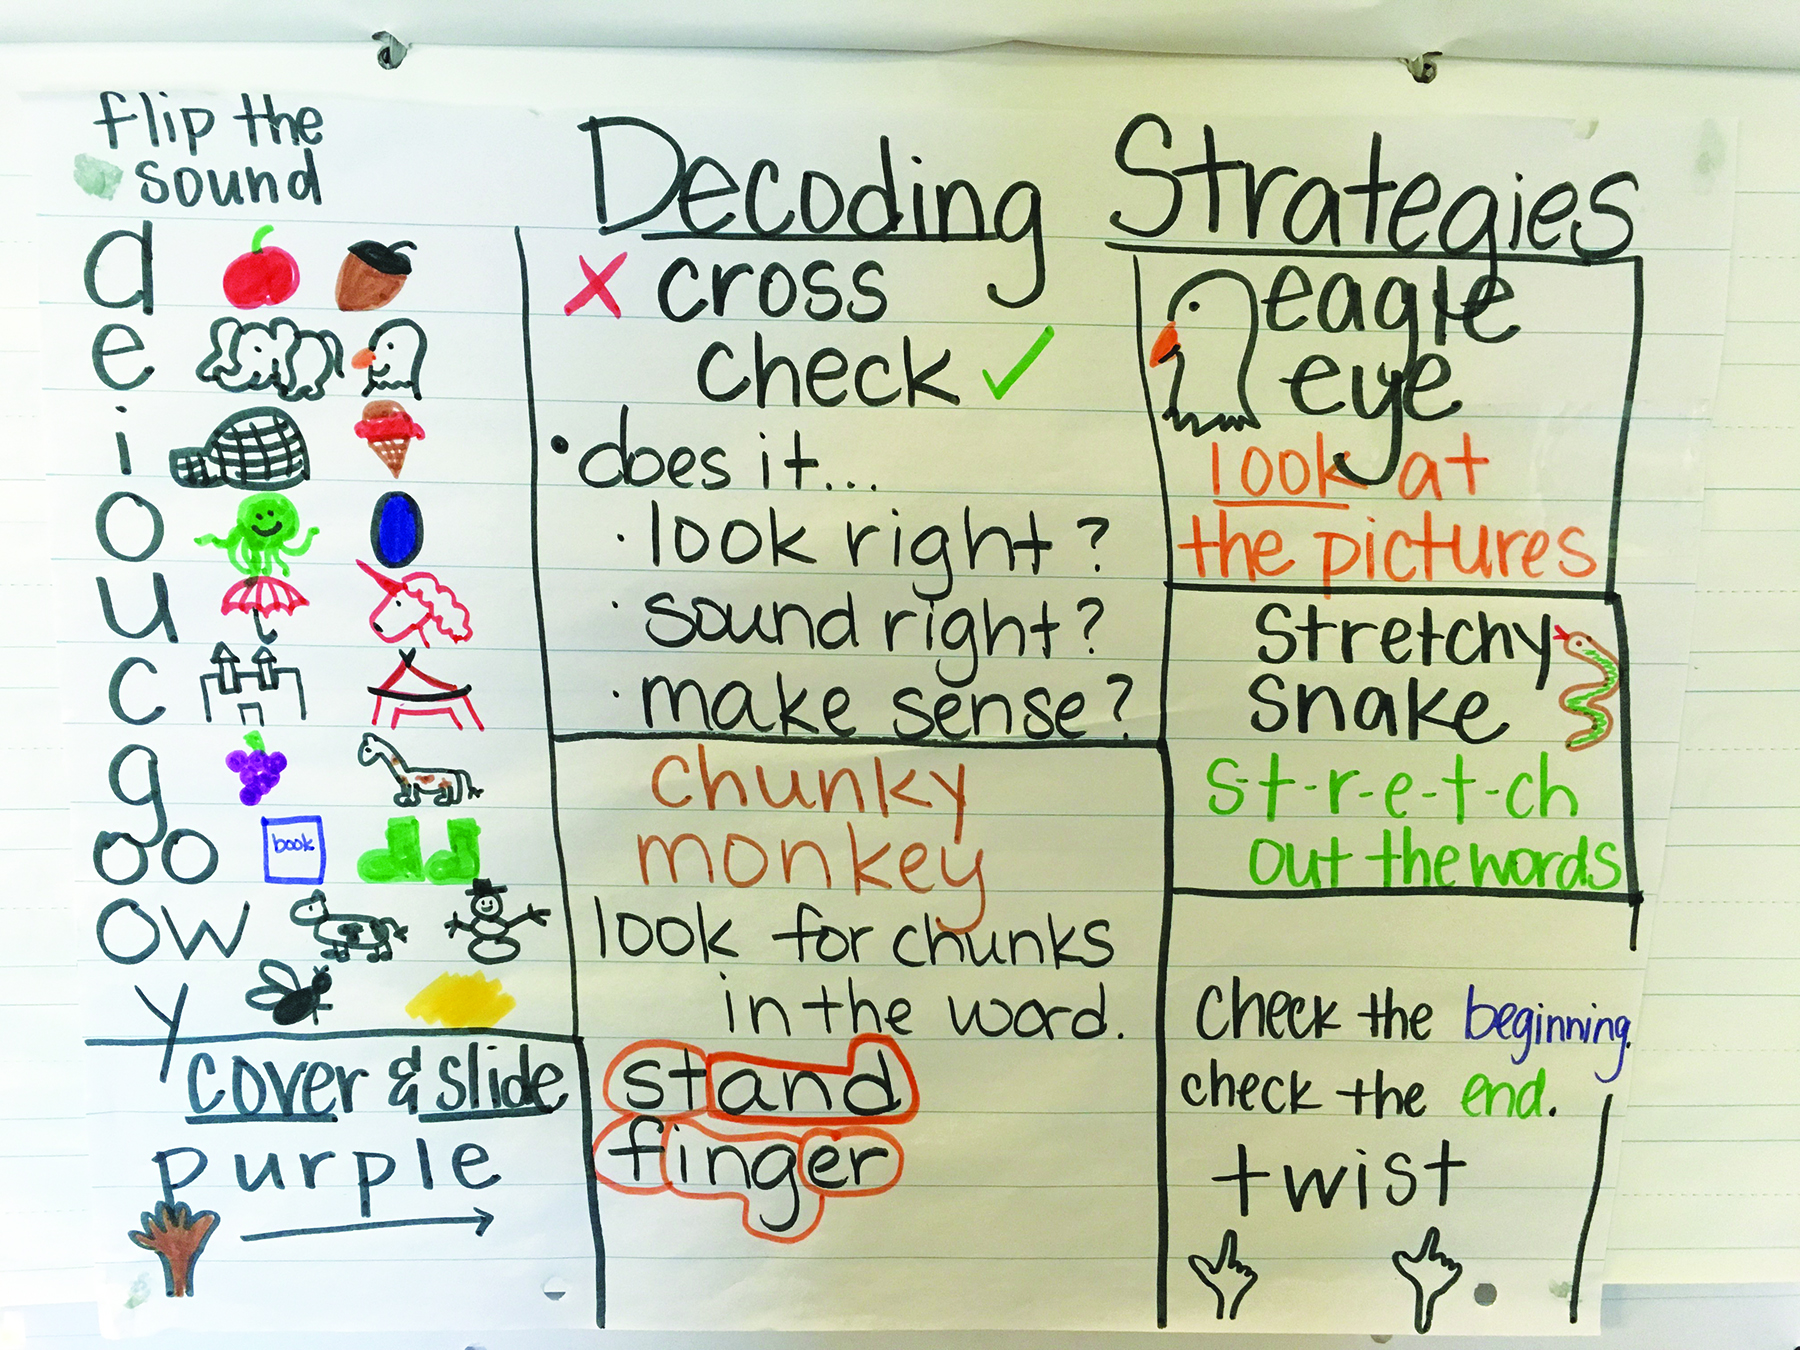 flip the
sound
a
e
i
o
u
c
g
oo
book
ow
y
cover & slide
purple
Decoding Strategies
x cross
check ✓
• does it...
· look right?
· sound right?
· make sense?
chunky
monkey
look for chunks
in the word.
stand
finger
eagle
eye
look at
the pictures
stretchy
snake
s-t-r-e-t-ch
out the words
check the beginning.
check the end.
twist